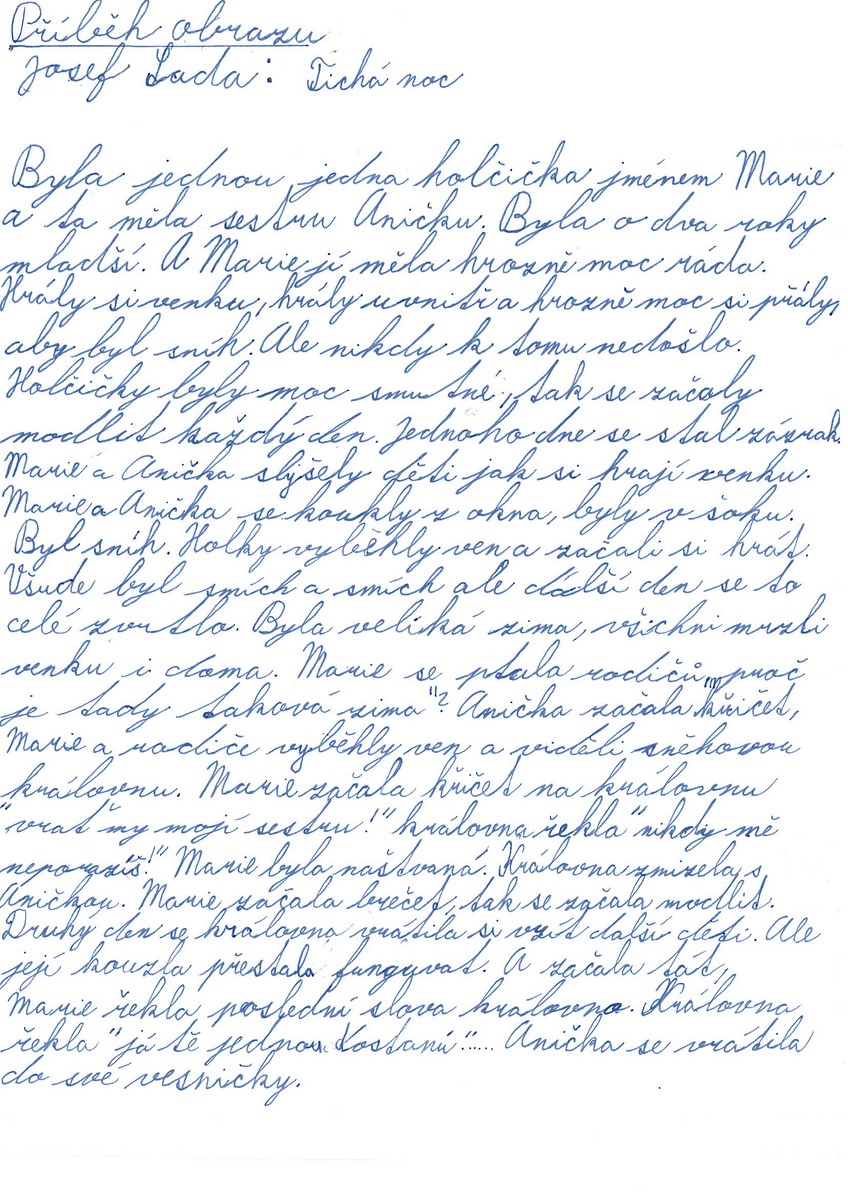 Příběh obrazu
Josef Lada: Tichá noc
Byla jednou jedna holčička jménem Marie
a ta měla sestru Aničku. Byla o dva roky
mladší. A Marie jí měla hrozně moc ráda.
Hrály si venku, hrály uvnitř a hrozně moc si přály,
aby byl sníh. Ale nikdy k tomu nedošlo.
Holčičky byly moc smutné, tak se začaly
modlit každý den. Jednoho dne se stal zázrak.
Marie a Anička slyšely děti jak si hrají venku.
Marie a Anička se koukly z okna, byly v šoku.
Byl sníh. Holky vyběhly ven a začali si hrát.
Všude byl smích a smích ale další den se to
celé zvrtlo. Byla veliká zima, všichni mrzli
venku i doma. Marie se ptala rodičů „proč
je tady taková zima"? Anička začala křičet,
Marie a rodiče vyběhly ven a viděli sněhovou
královnu. Marie začala křičet na královnu
"vrať my mojí sestru!" královna řekla "nikdy mě
neporazíš!" Marie byla naštvaná. Královna zmizela s
Aničkou. Marie začala brečet, tak se začala modlit.
Druhý den se královna vrátila si vzít další děti. Ale
její kouzla přestala fungovat. A začala tát,
Marie řekla poslední slova královno. Královna
řekla "já tě jednou dostanu"..... Anička se vrátila
do své vesničky.